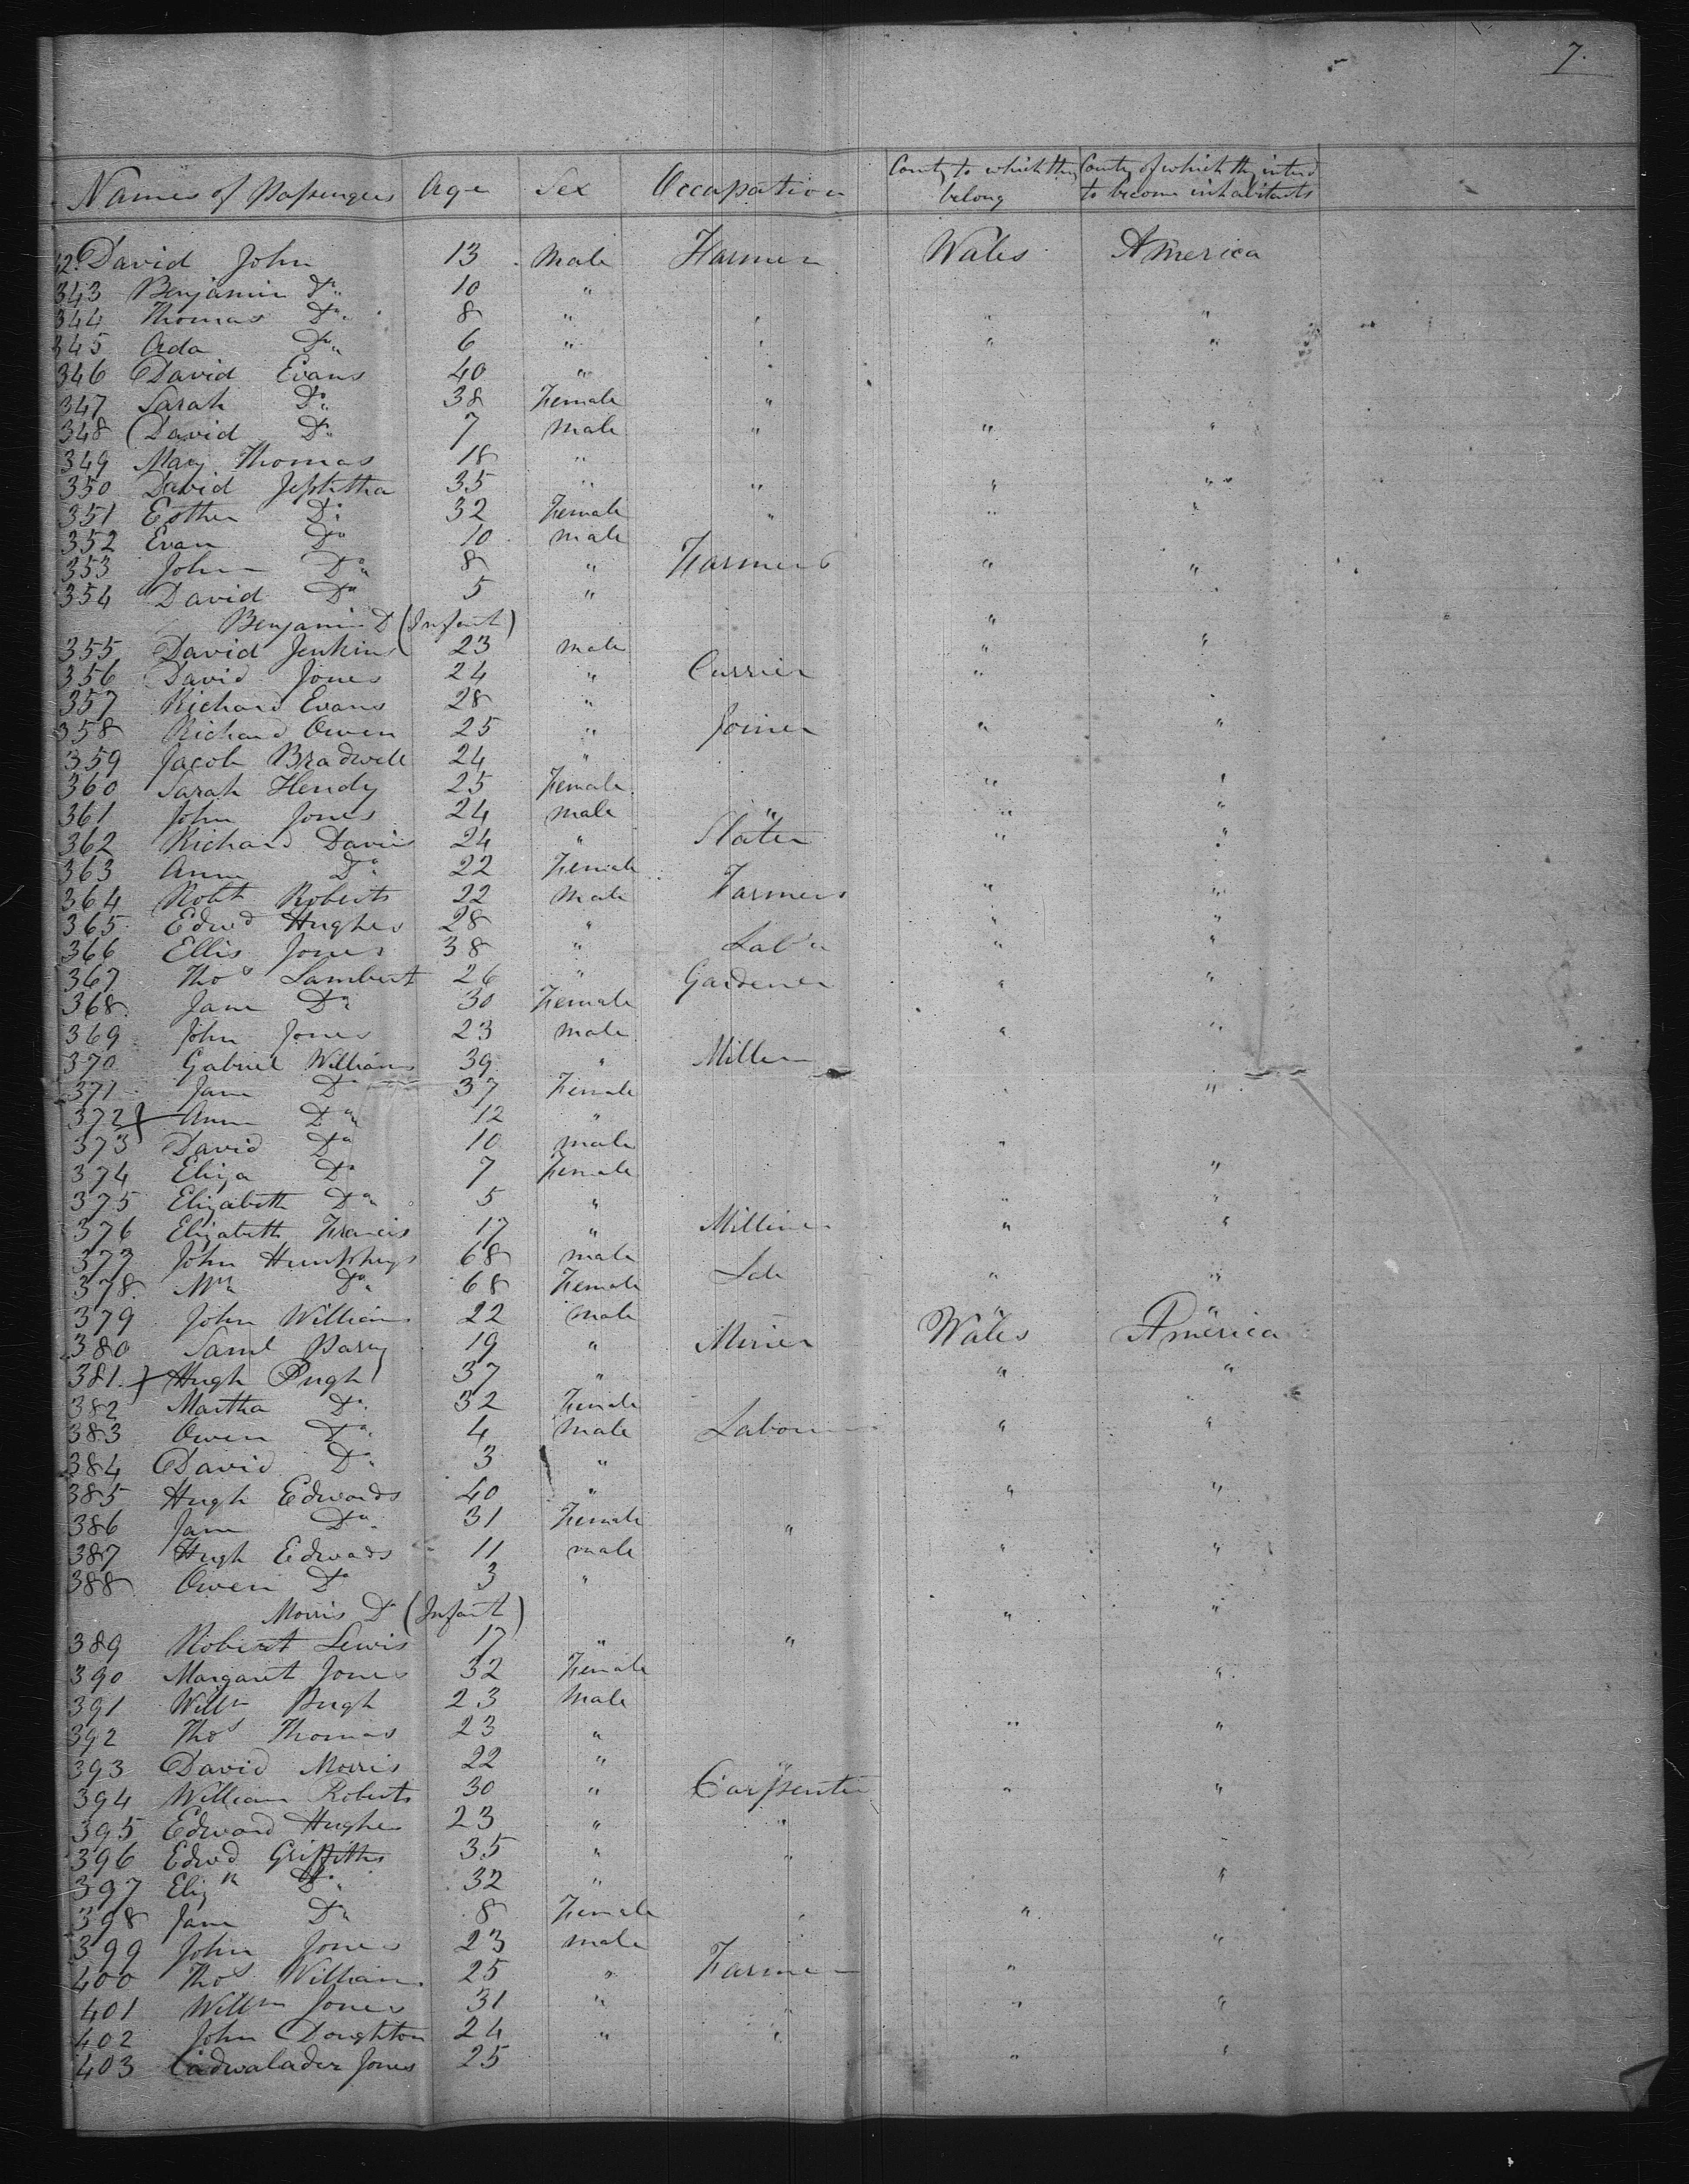 7.
Names of Passengers Age Sex Occupation County to which they belong County of which they intend to become inhabitants
42. David John 13 Male Farmer Wales America
343 Benjamin Do 10 "
344 Thomas Do 8 " " " "
345 Ada Do 6 " " " "
346 David Evans 40 " "
347 Sarah Do 38 Female "
348 David Do 7 Male " " "
349 Mary Thomas 18 "
350 David Jephtha 35 " " " "
351 Esther Do 32 Female " " "
352 Evan Do 10 Male
353 John Do 8 " Farmers " "
354 David Do 5 "
Benjamin D (Infant) "
355 David Jenkins 23 male " "
356 David Jones 24 " Currier "
357 Richard Evans 28 "
358 Richard Owen 25 " Joiner " "
359 Jacob Bradwell 24 "
360 Sarah Hendy 25 Female " "
361 John Jones 24 male " " "
362 Richard Davis 24 " Slater " "
363 Ann Do 22 Female
364 Robt Roberts 22 Male Farmers " "
365 Edwd Hughes 28 " " "
366 Ellis Jones 38 " Labr " "
367 Thos Lambert 26 " Gardener " "
368. Jane Do 30 Female
369 John Jones 23 male " "
370 Gabriel Williams 39 " Miller
371 Jane D 37 Female " "
372 Ann Do 12 "
373 David Do 10 male "
374 Eliza Do 7 Female "
375 Elizabeth Do 5 " " "
376 Elizabeth Francis 17 " Milliner " "
377 John Humphreys 68 male
378. Mrs Do 68 Female Lab " "
379 John Williams 22 male " "
380 Saml Parry 19 " Miner Wales America
381. Hugh Pugh 37 " " "
382 Martha Do 32 Female
383 Owen Do 4 Male Labour " "
384 David Do 3 "
385 Hugh Edwards 40 " " "
386 Jane Do 31 Female "
387 Hugh Edwads 11 male " "
388 Owen Do 3 "
Morris Do (Infant) " "
389 Robert Lewis 17 " "
390 Margaret Jones 32 Female "
391 Willm Pugh 23 Male
392 Thos Thomas 23 " " "
393 David Morris 22 " "
394 William Roberts 30 " Carpenter " "
395 Edward Hughes 23 " "
396 Edwd Griffiths 35 " "
397 Elizth Do 32 " "
398 Jane Do 8 Female "
399 John Jones 23 male "
400 Thos Williams 25 " Farmer "
401 Willm Jones 31 " " " "
402 John Doughton 24 " "
403 Cadwalader Jones 25 " "